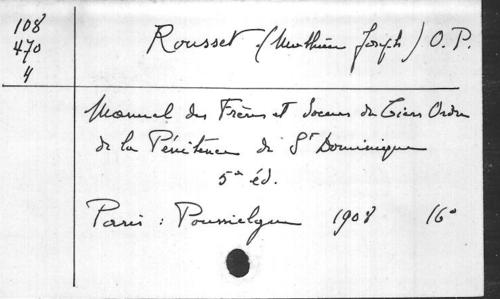 108
470
4
Rousset (Matthieu Joseph) O. P.
Manuel des Frères et Soeurs du Tiers Ordre
de la Pénitence de St Dominique
5e éd.
Paris : Poussielgue 1908 16°